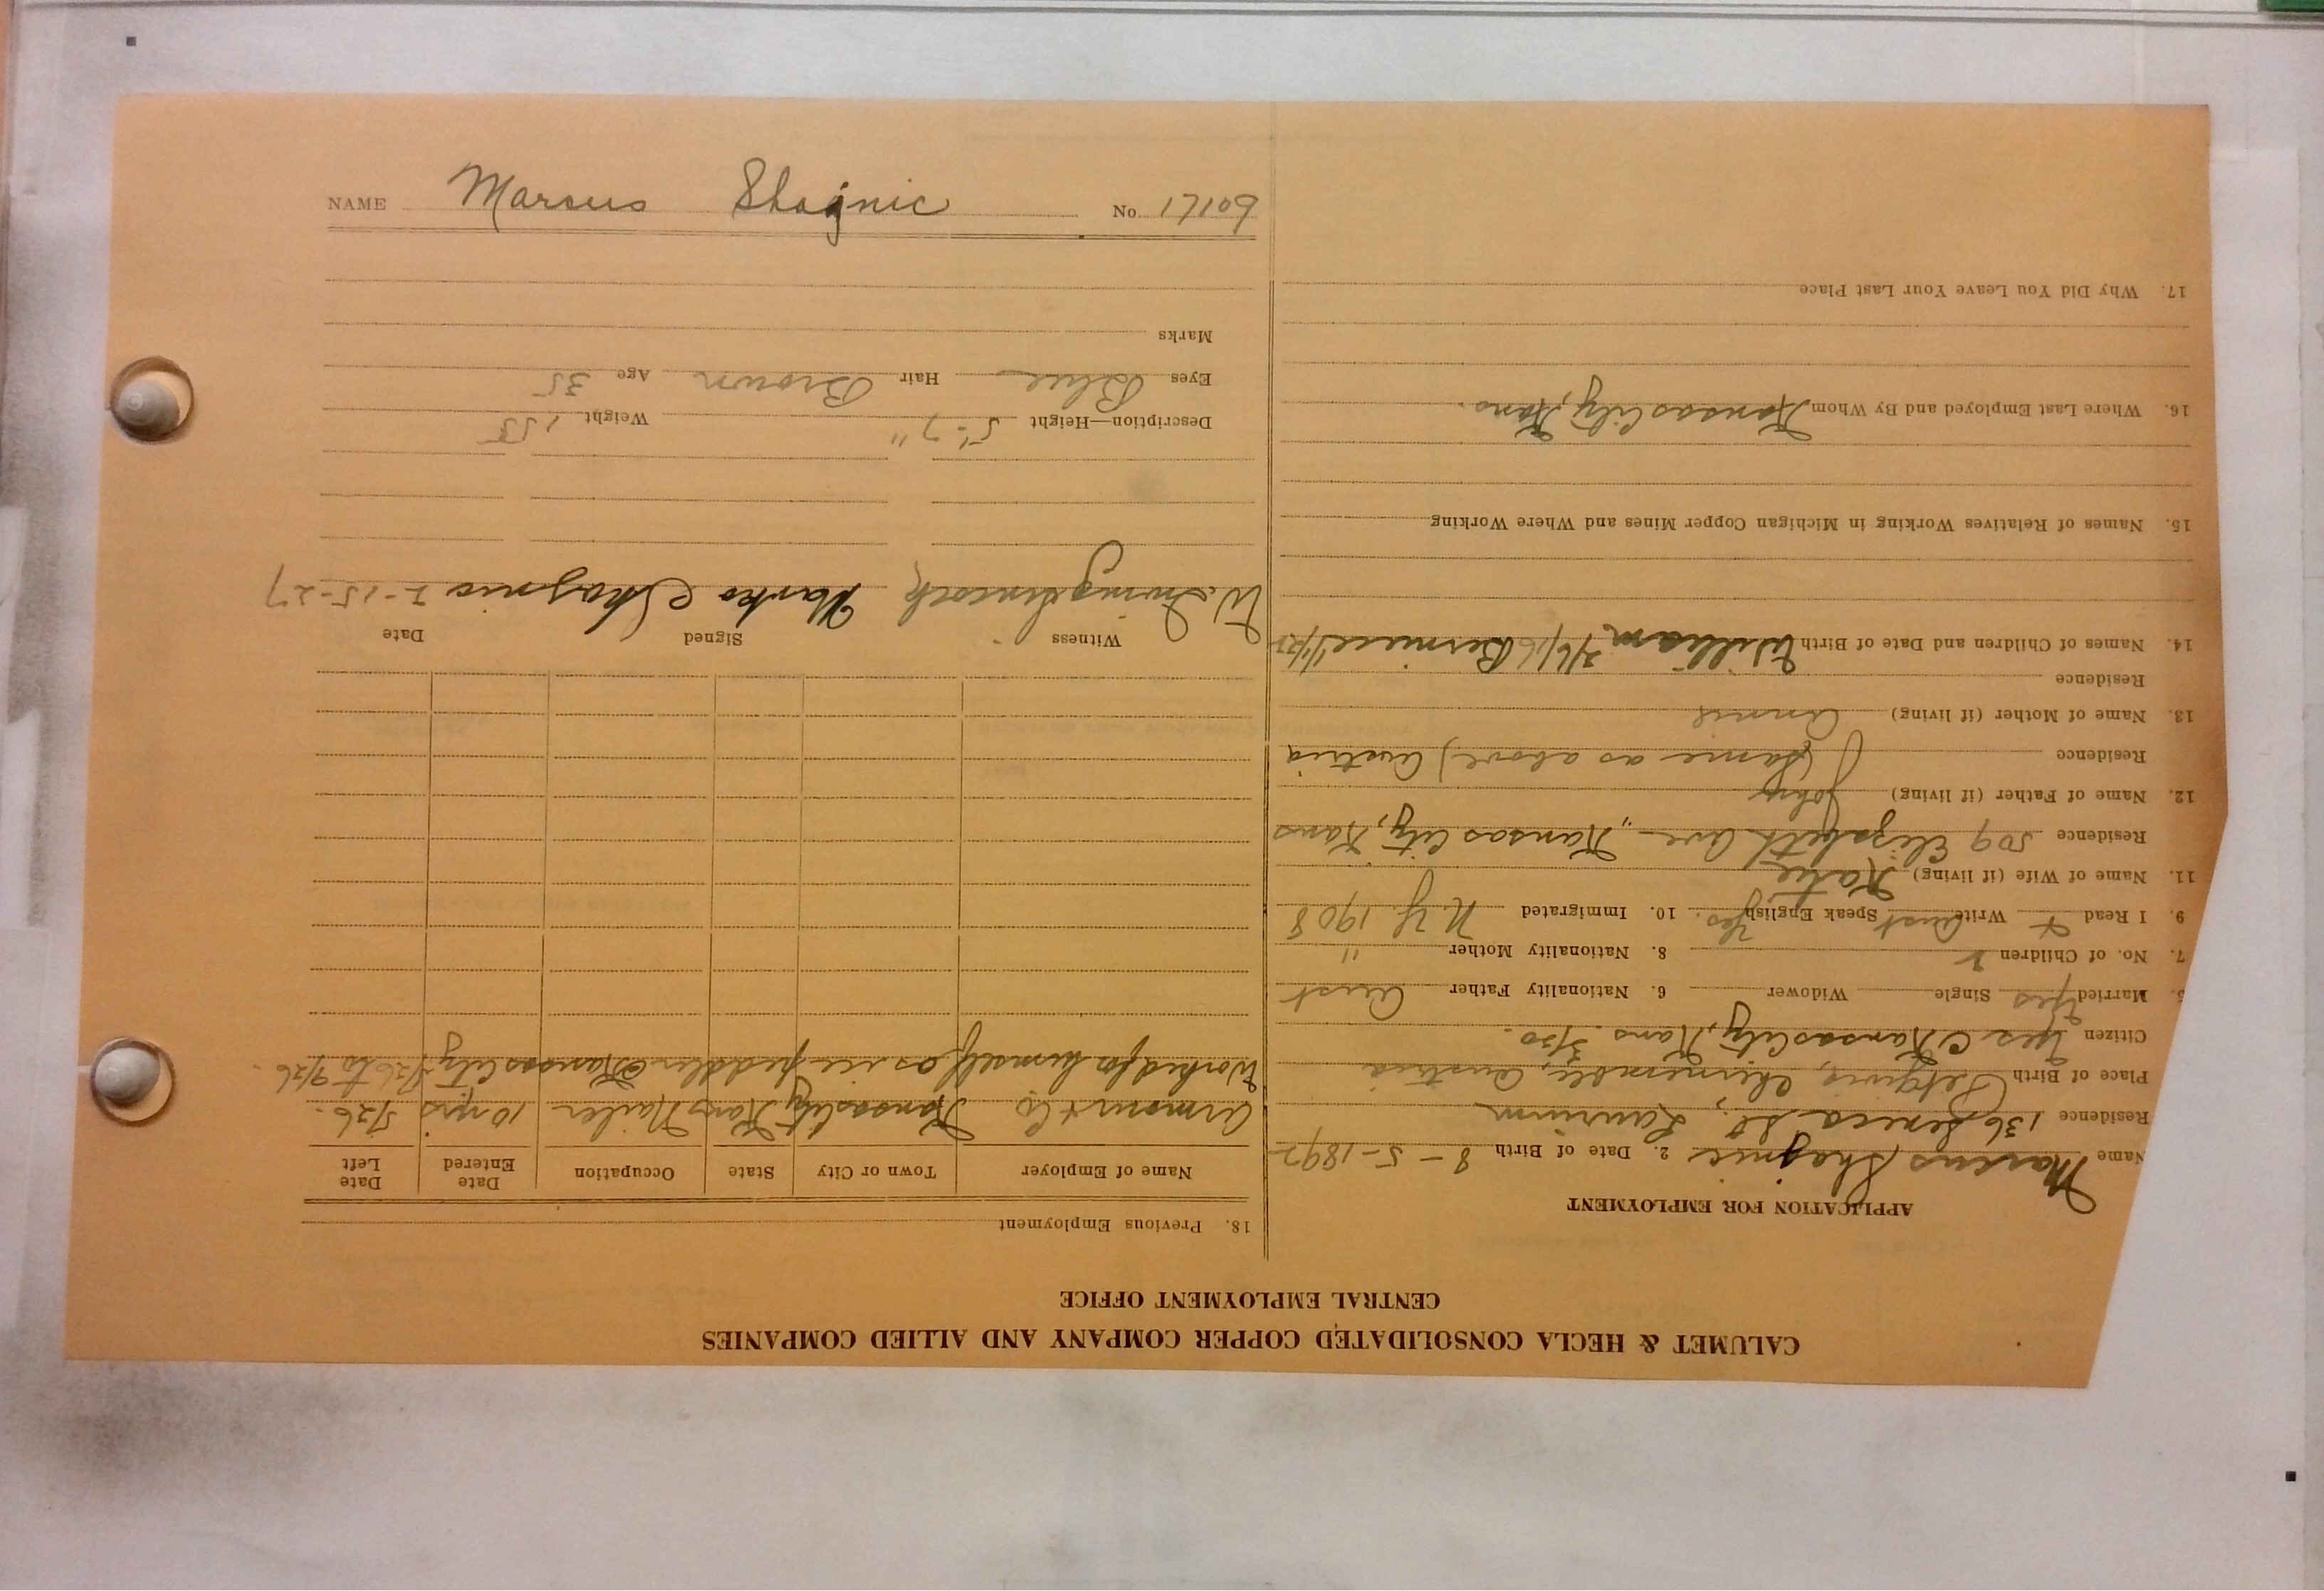 NAME Marcus Shajnic No 17109
CALUMET & HECLA CONSOLIDATED COPPER COMPANY AND ALLIED COMPANIES
CENTRAL EMPLOYMENT OFFICE
APPLICATION FOR EMPLOYMENT
Name Marcus Shajnic 2. Date of Birth 8-5-1892
Residence 136 Seneca St., Laurium
Place of Birth Austria
Citizen Yes Kansas City, Kans. 3/20.
5. Married Yes Single Widower 6. Nationality Father Aust
7. No. of Children 2 8. Nationality Mother "
9. I Read + Write Aust Speak English Yes. 10. Immigrated N.Y. 1908
11. Name of Wife (if living) Katie
Residence 509 Elizabeth Ave., Kansas City, Kans
12. Name of Father (if living) John
Residence (same as above) Austria
13. Name of Mother (if living) Annie
Residence
14. Names of Children and Date of Birth William 3/6/16 Bernice
15. Names of Relatives Working in Michigan Copper Mines and Where Working
16. Where Last Employed and By Whom Kansas City, Kans.
17. Why Did You Leave Your Last Place
18. Previous Employment
Name of Employer Town or City State Occupation Date Entered Date Left
Armour & Co Kansas City Kans Nailer 10 yrs 5/26.
Worked for himself as ice peddler Kansas City 5/26 to 9/26.
Witness Signed Date
Marko Shajnic 2-15-27
Description—Height 5'-7" Weight 155
Eyes Blue Hair Brown Age 35
Marks